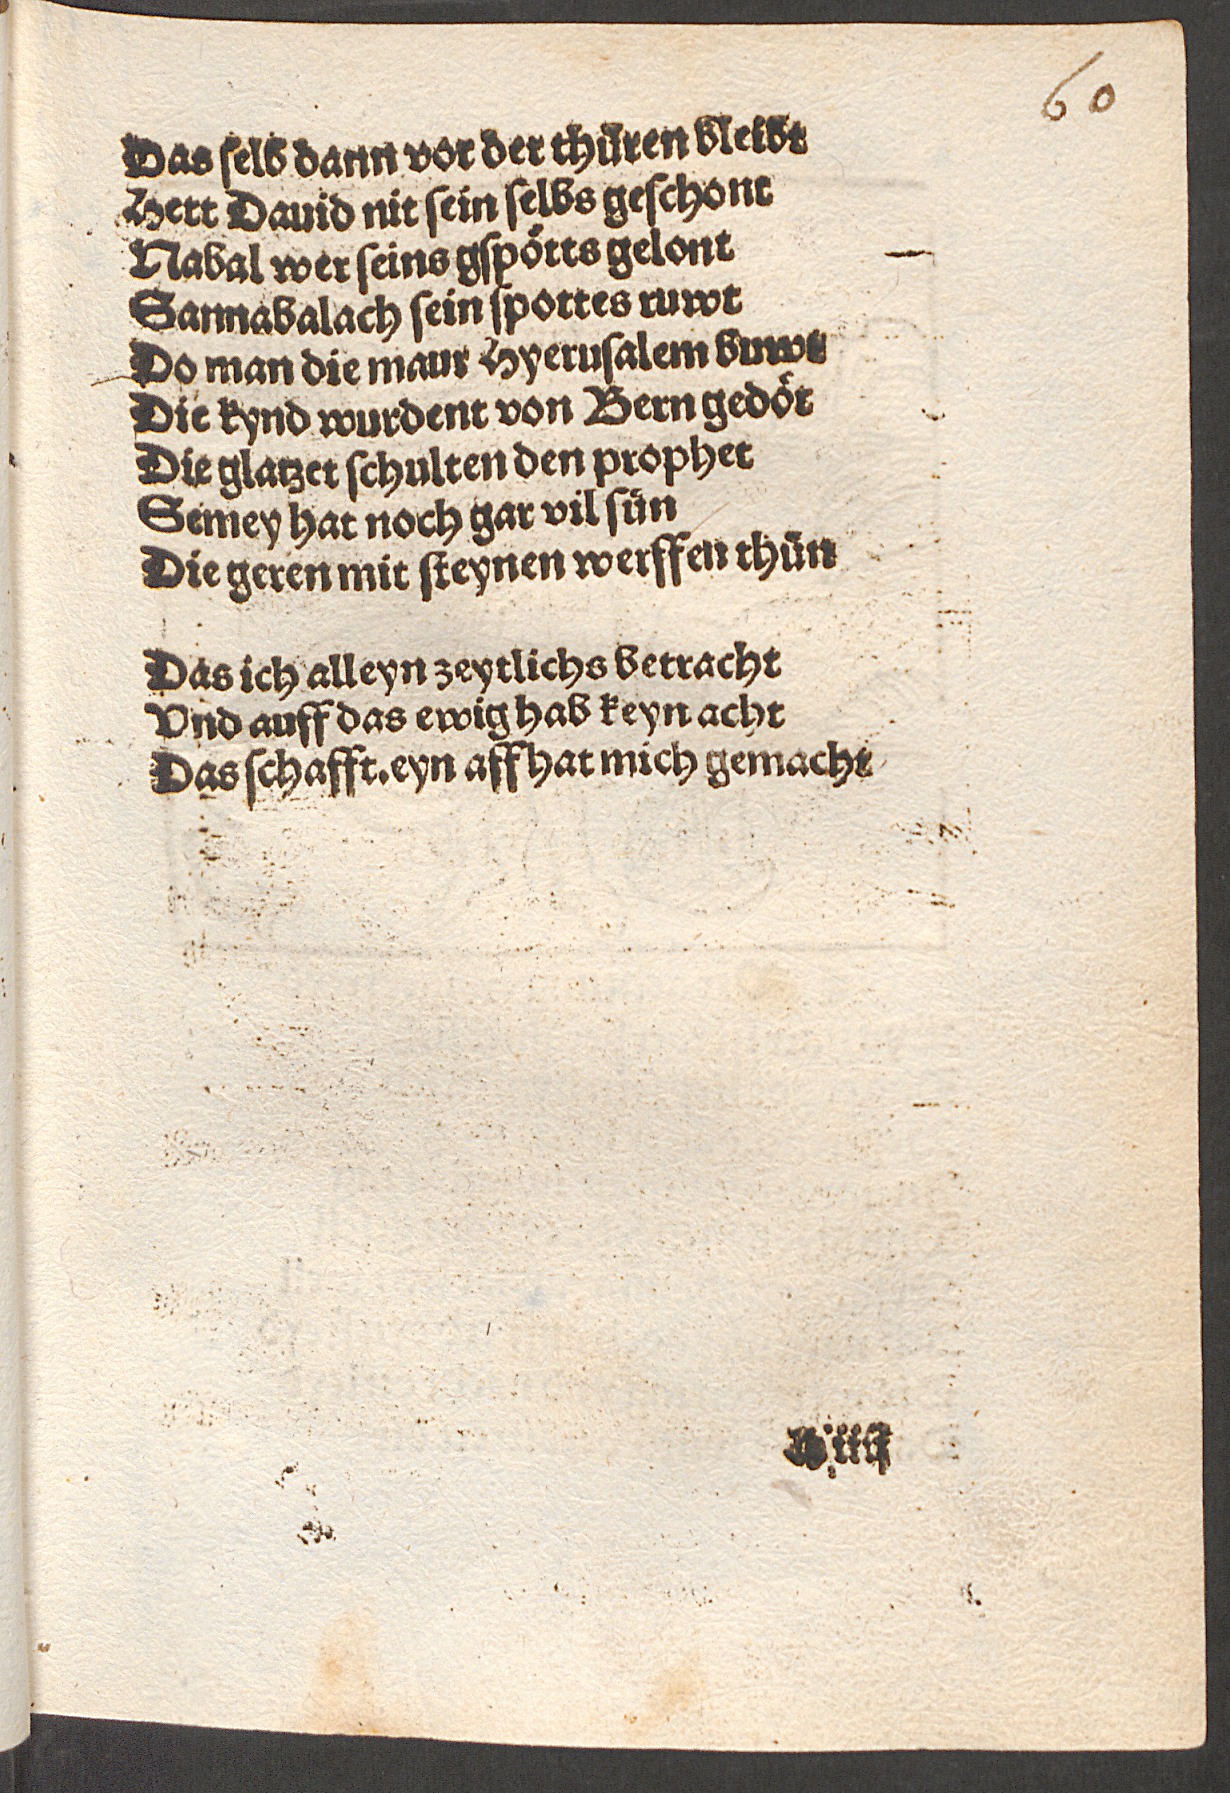 60
Das selb dann vor der thüren bleibt
Hett Dauid nit sein selbs geschont
Nabal wer seins gspötts gelont
Sannabalach sein spottes ruwt
Do man die maur Hyerusalem buwt
Die kynd wurdent von Bern gedöt
Die glatzet schulten den prophet
Semey hat noch gar vil sün
Die geren mit steynen werffen thün
Das ich alleyn zeytlichs betracht
Vnd auff das ewig hab keyn acht
Das schafft. eyn aff hat mich gemacht